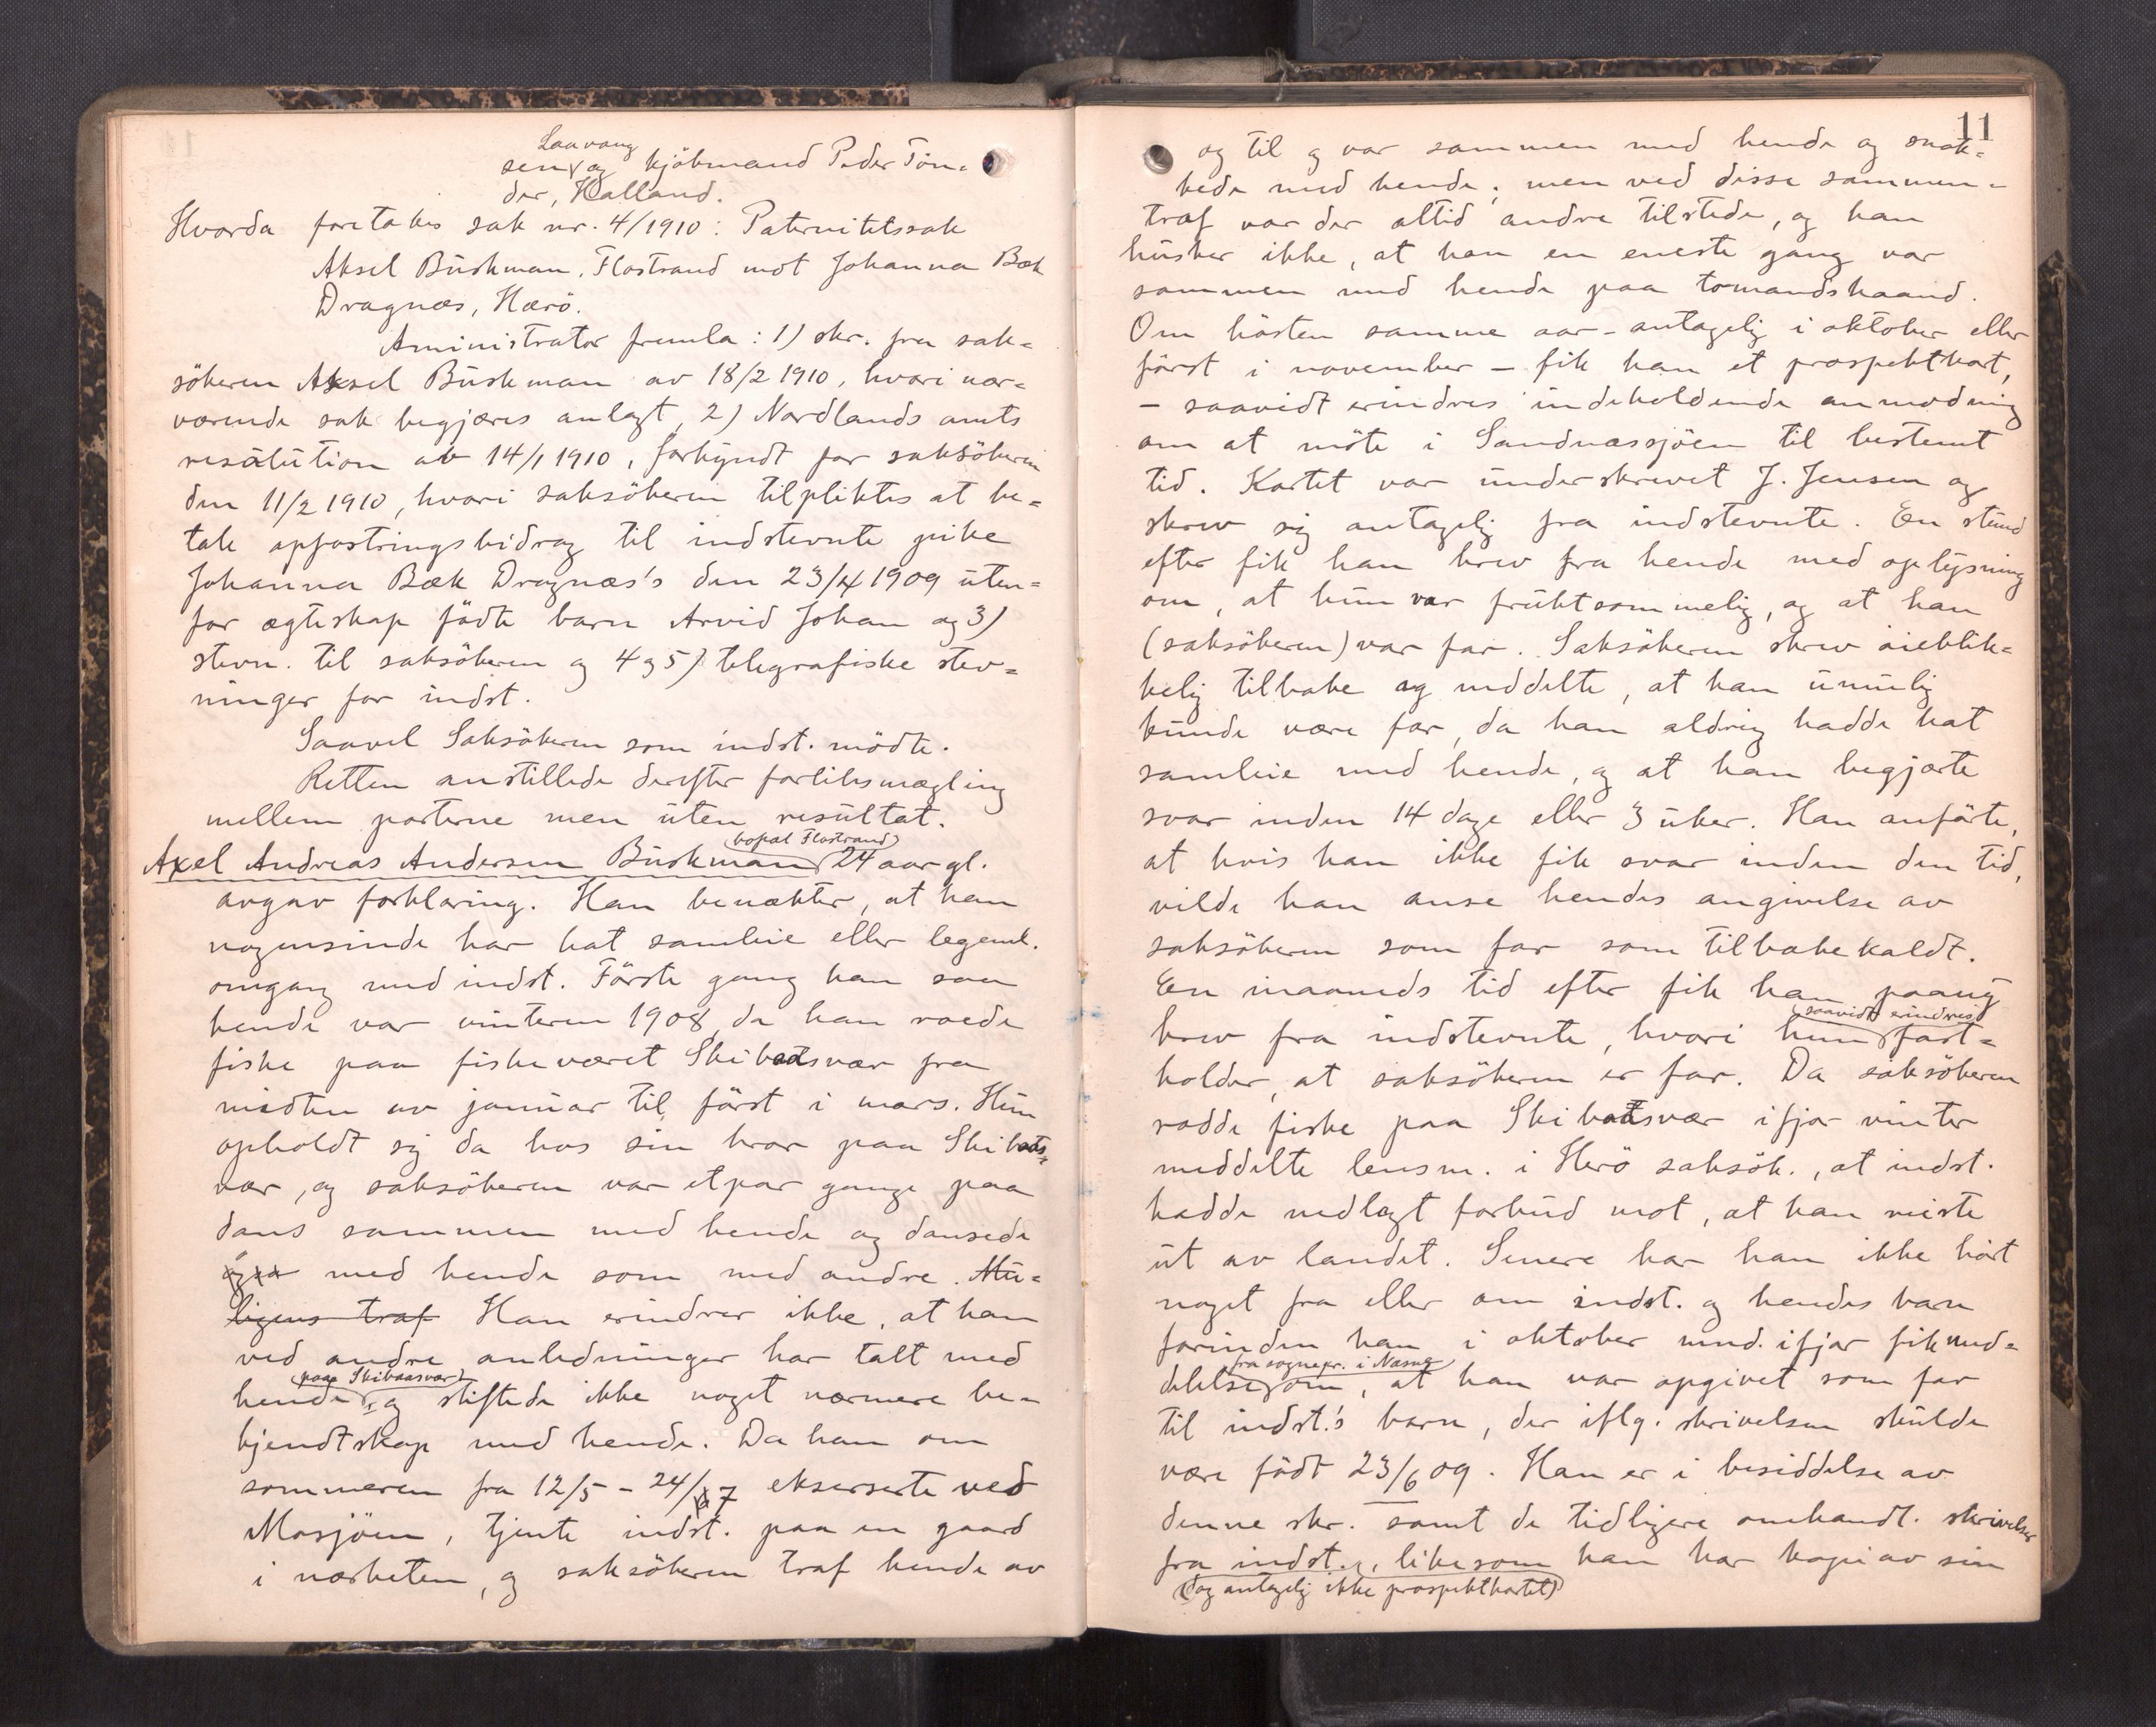 Laavang
sen og kjöbmand Peder Tön-
der, Halland.
Hvorda foretokes sak nr. 4/1910: Paternitetssak
Aksel Buskman, Flostrand mot Johanna Bæk
Dragnæs, Herö.
Aministrator fremla: 1) skr. fra sak-
sökeren Aksel Buskman av 18/2 1910, hvori nær-
værende sak begjæres anlagt, 2) Nordlands amts
resolution av 14/1 1910, forkyndt for saksökeren
den 11/2 1910, hvori saksökeren tilpliktes at be-
tale opfostringsbidrag til indstevnte pike
Johanna Bæk Dragnæs's den 23/4 1909 uten-
for ægteskap födte barn Arvid Johan og 3)
stevn. til saksökeren og 4 og 5) telegrafiske stev-
ninger for indst.
Saavel Saksökeren som indst. mödte.
Retten anstillede derefter forliksmægling
mellem parterne men uten resultat.
bopæl Flostrand
Axel Andreas Andersen Buskman 24 aar gl.
avgav forklaring. Han benækter, at han
nogensinde har hat samleie eller legeml.
omgang med indst. Förste gang han saa
hende var vinteren 1908, da han roede
fiske paa fiskeværet Skibaatsvær fra
midten av januar til först i mars. Hun
opholdt sig da hos sin bror paa Skibaats-
vær, og saksökeren var etpar gange paa
dans sammen med hende og dansede
ogsa med hende som med andre. Mu-
ligens traf Han erindrer ikke, at han
ved andre anledninger har talt med
paa Skibaasvær
hende, og stiftede ikke noget nærmere be-
kjendtskap med hende. Da han om
sommeren fra 12/5 - 24/7 ekserserte ved
Mosjöen, tjente indst. paa en gaard
i nærheten, og saksökeren traf hende av
11
og til og var sammen med hende og snak-
kede med hende; men ved disse sammen-
træf var der altid andre tilstede, og han
husker ikke, at han en eneste gang var
sammen med hende paa tomandshaand.
Om hösten samme aar - antagelig i oktober eller
först i november - fik han et prospektkort,
- saavidt erindres indeholdende anmodning
om at möte i Sandnæssjöen til bestemt
tid. Kortet var underskrevet J. Jensen og
skrev sig antagelig fra indstevnte. En stund
efter fik han brev fra hende med oplysning
om, at hun var fruktsommelig, og at han
(saksökeren) var far. Saksökeren skrev öieblik-
kelig tilbake og meddelte, at han umulig
kunde være far, da han aldrig hadde hat
samleie med hende, og at han begjærte
svar inden 14 dage eller 3 uker. Han anförte,
at hvis han ikke fik svar inden den tid,
vilde han anse hendes angivelse av
saksökeren som far som tilbakekaldt.
En maaneds tid efter fik han paany
saavidt erindres
brev fra indstevnte, hvori hun fast-
holder, at saksökeren er far. Da saksökeren
rodde fiske paa Skibaatsvær ifjor vinter
meddelte lensm. i Herö saksök., at indst.
hadde nedlagt forbud mot, at han reiste
ut av landet. Senere har han ikke hört
noget fra eller om indst. og hendes barn
forinden han i oktober mnd. ifjor fik med-
fra sognepr. i Næsna
delelse om, at han var opgivet som far
til indst.'s barn, der iflg. skrivelsen skulde
være födt 23/6 09. Han er i besiddelse av
denne skr. samt de tidligere omhandl. skrivelser
fra indst., likesom han har kopi av sin
(dog antagelig ikke prospektkortet)